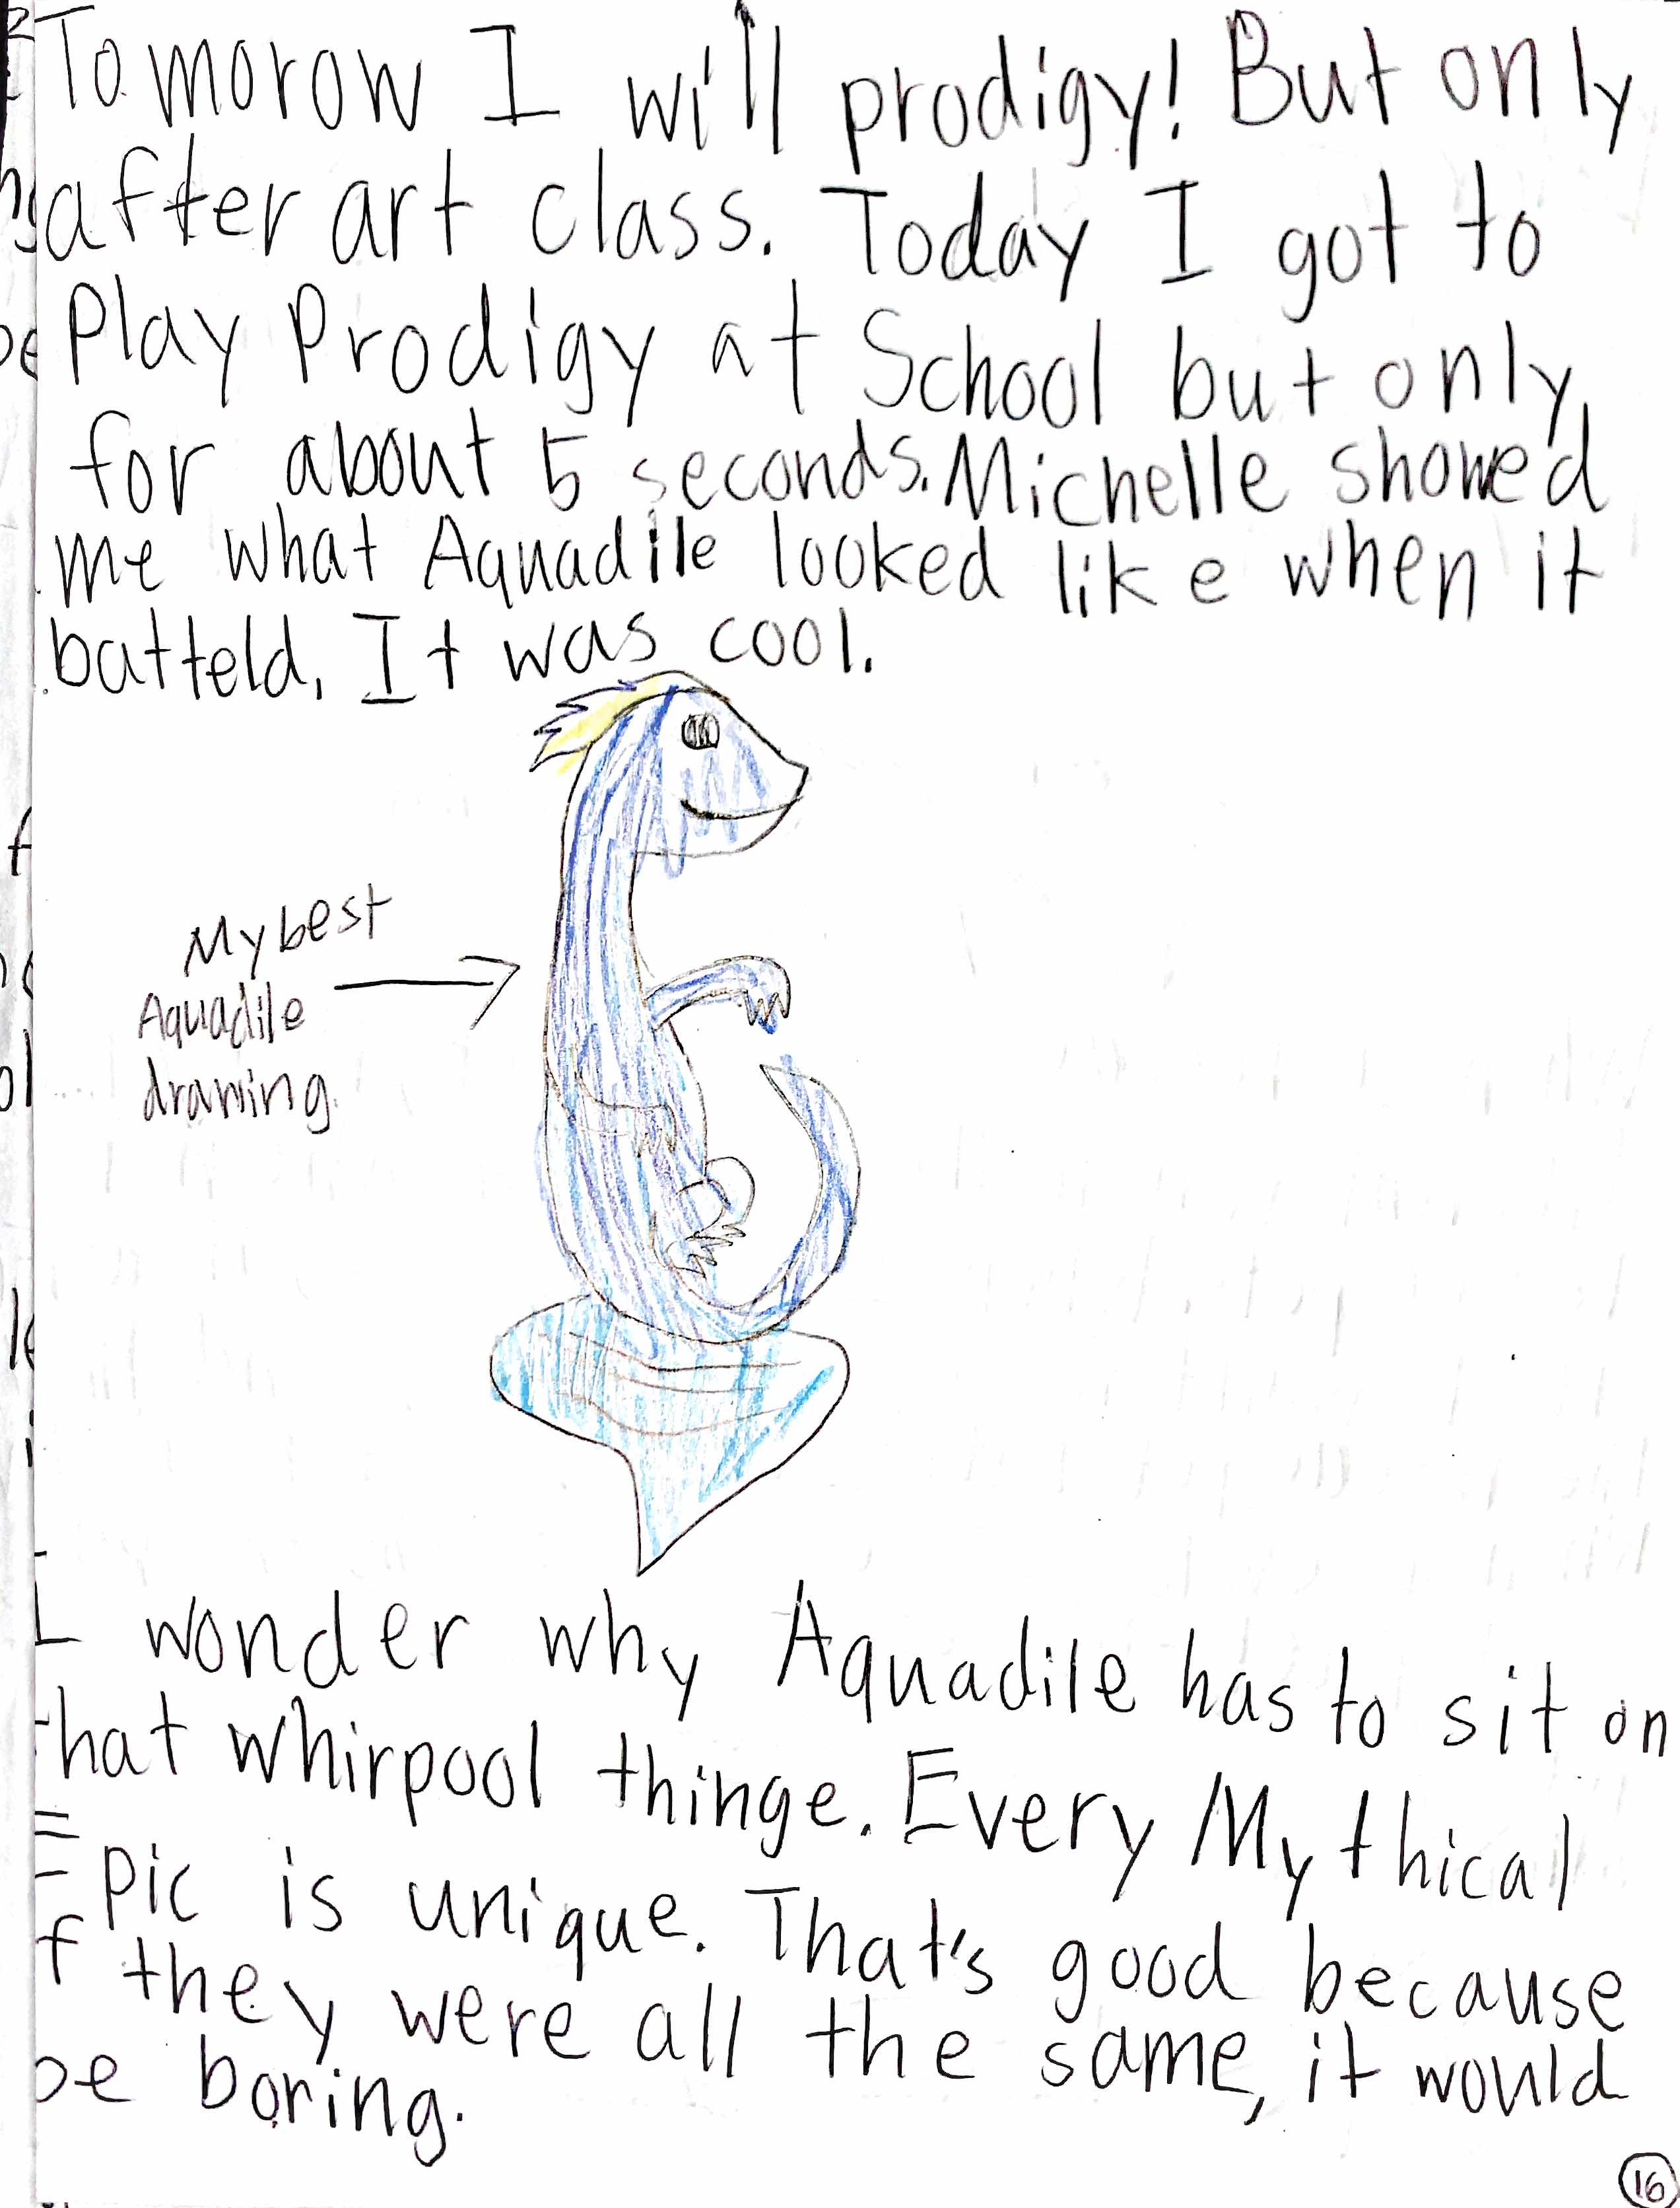 Tomorow I will prodigy! But only
after art class. Today I got to
Play Prodigy at School but only
for about 5 seconds. Michelle showed
me what Aquadile looked like when it
batteld. It was cool.
My best
Aquadile
drawing.
I wonder why Aquadile has to sit on
that whirpool thinge. Every Mythical
Epic is unique. That's good because
if they were all the same, it would
be boring.
16